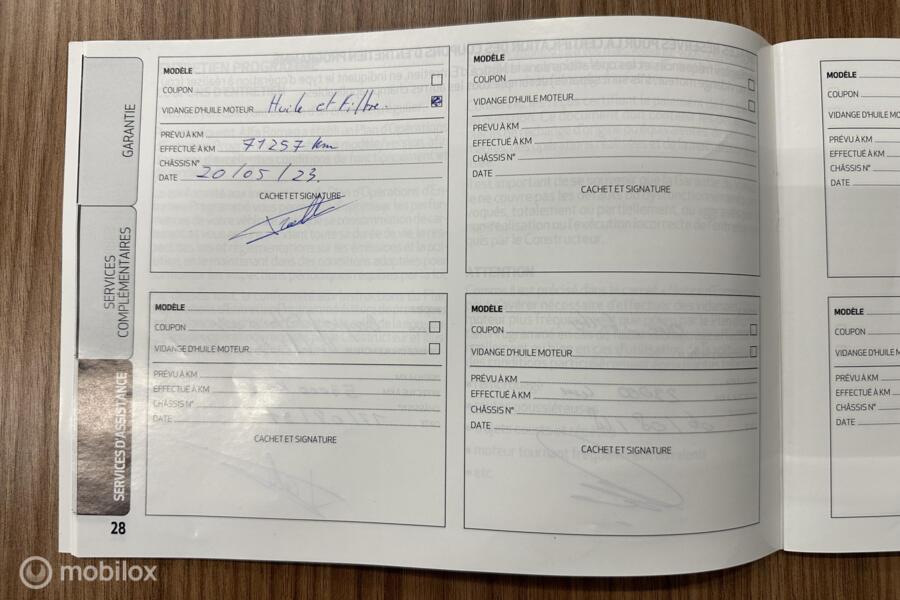 GARANTIE
SERVICES
COMPLÉMENTAIRES
SERVICES D'ASSISTANCE
28
MODÈLE
COUPON
VIDANGE D'HUILE MOTEUR Huile et Filtre.
PRÉVU À KM
EFFECTUÉ À KM 71257 km
CHÂSSIS N°
DATE 20/05/23.
CACHET ET SIGNATURE
MODÈLE
COUPON
VIDANGE D'HUILE MOTEUR
PRÉVU À KM
EFFECTUÉ À KM
CHÂSSIS N°
DATE
CACHET ET SIGNATURE
MODÈLE
COUPON
VIDANGE D'HUILE M
PRÉVU À KM
EFFECTUÉ À KM
CHÂSSIS N°
DATE
MODÈLE
COUPON
VIDANGE D'HUILE MOTEUR
PRÉVU À KM
EFFECTUÉ À KM
CHÂSSIS N°
DATE
CACHET ET SIGNATURE
MODÈLE
COUPON
VIDANGE D'HUILE MOTEUR
PRÉVU À KM
EFFECTUÉ À KM
CHÂSSIS N°
DATE
CACHET ET SIGNATURE
MODÈLE
COUPON
VIDANGE D'HUILE M
PRÉVU À KM
EFFECTUÉ À KM
CHÂSSIS N°
DATE
mobilox